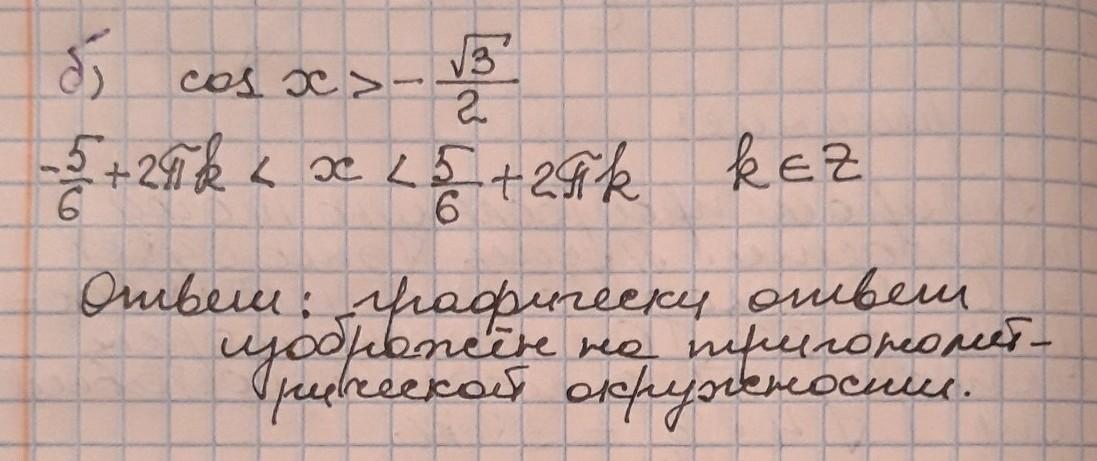 б) cos x > -√3/2
-5/6 + 2πk < x < 5/6 + 2πk k ∈ Z
Ответ: графически ответ
изображён на тригономет-
рической окружности.